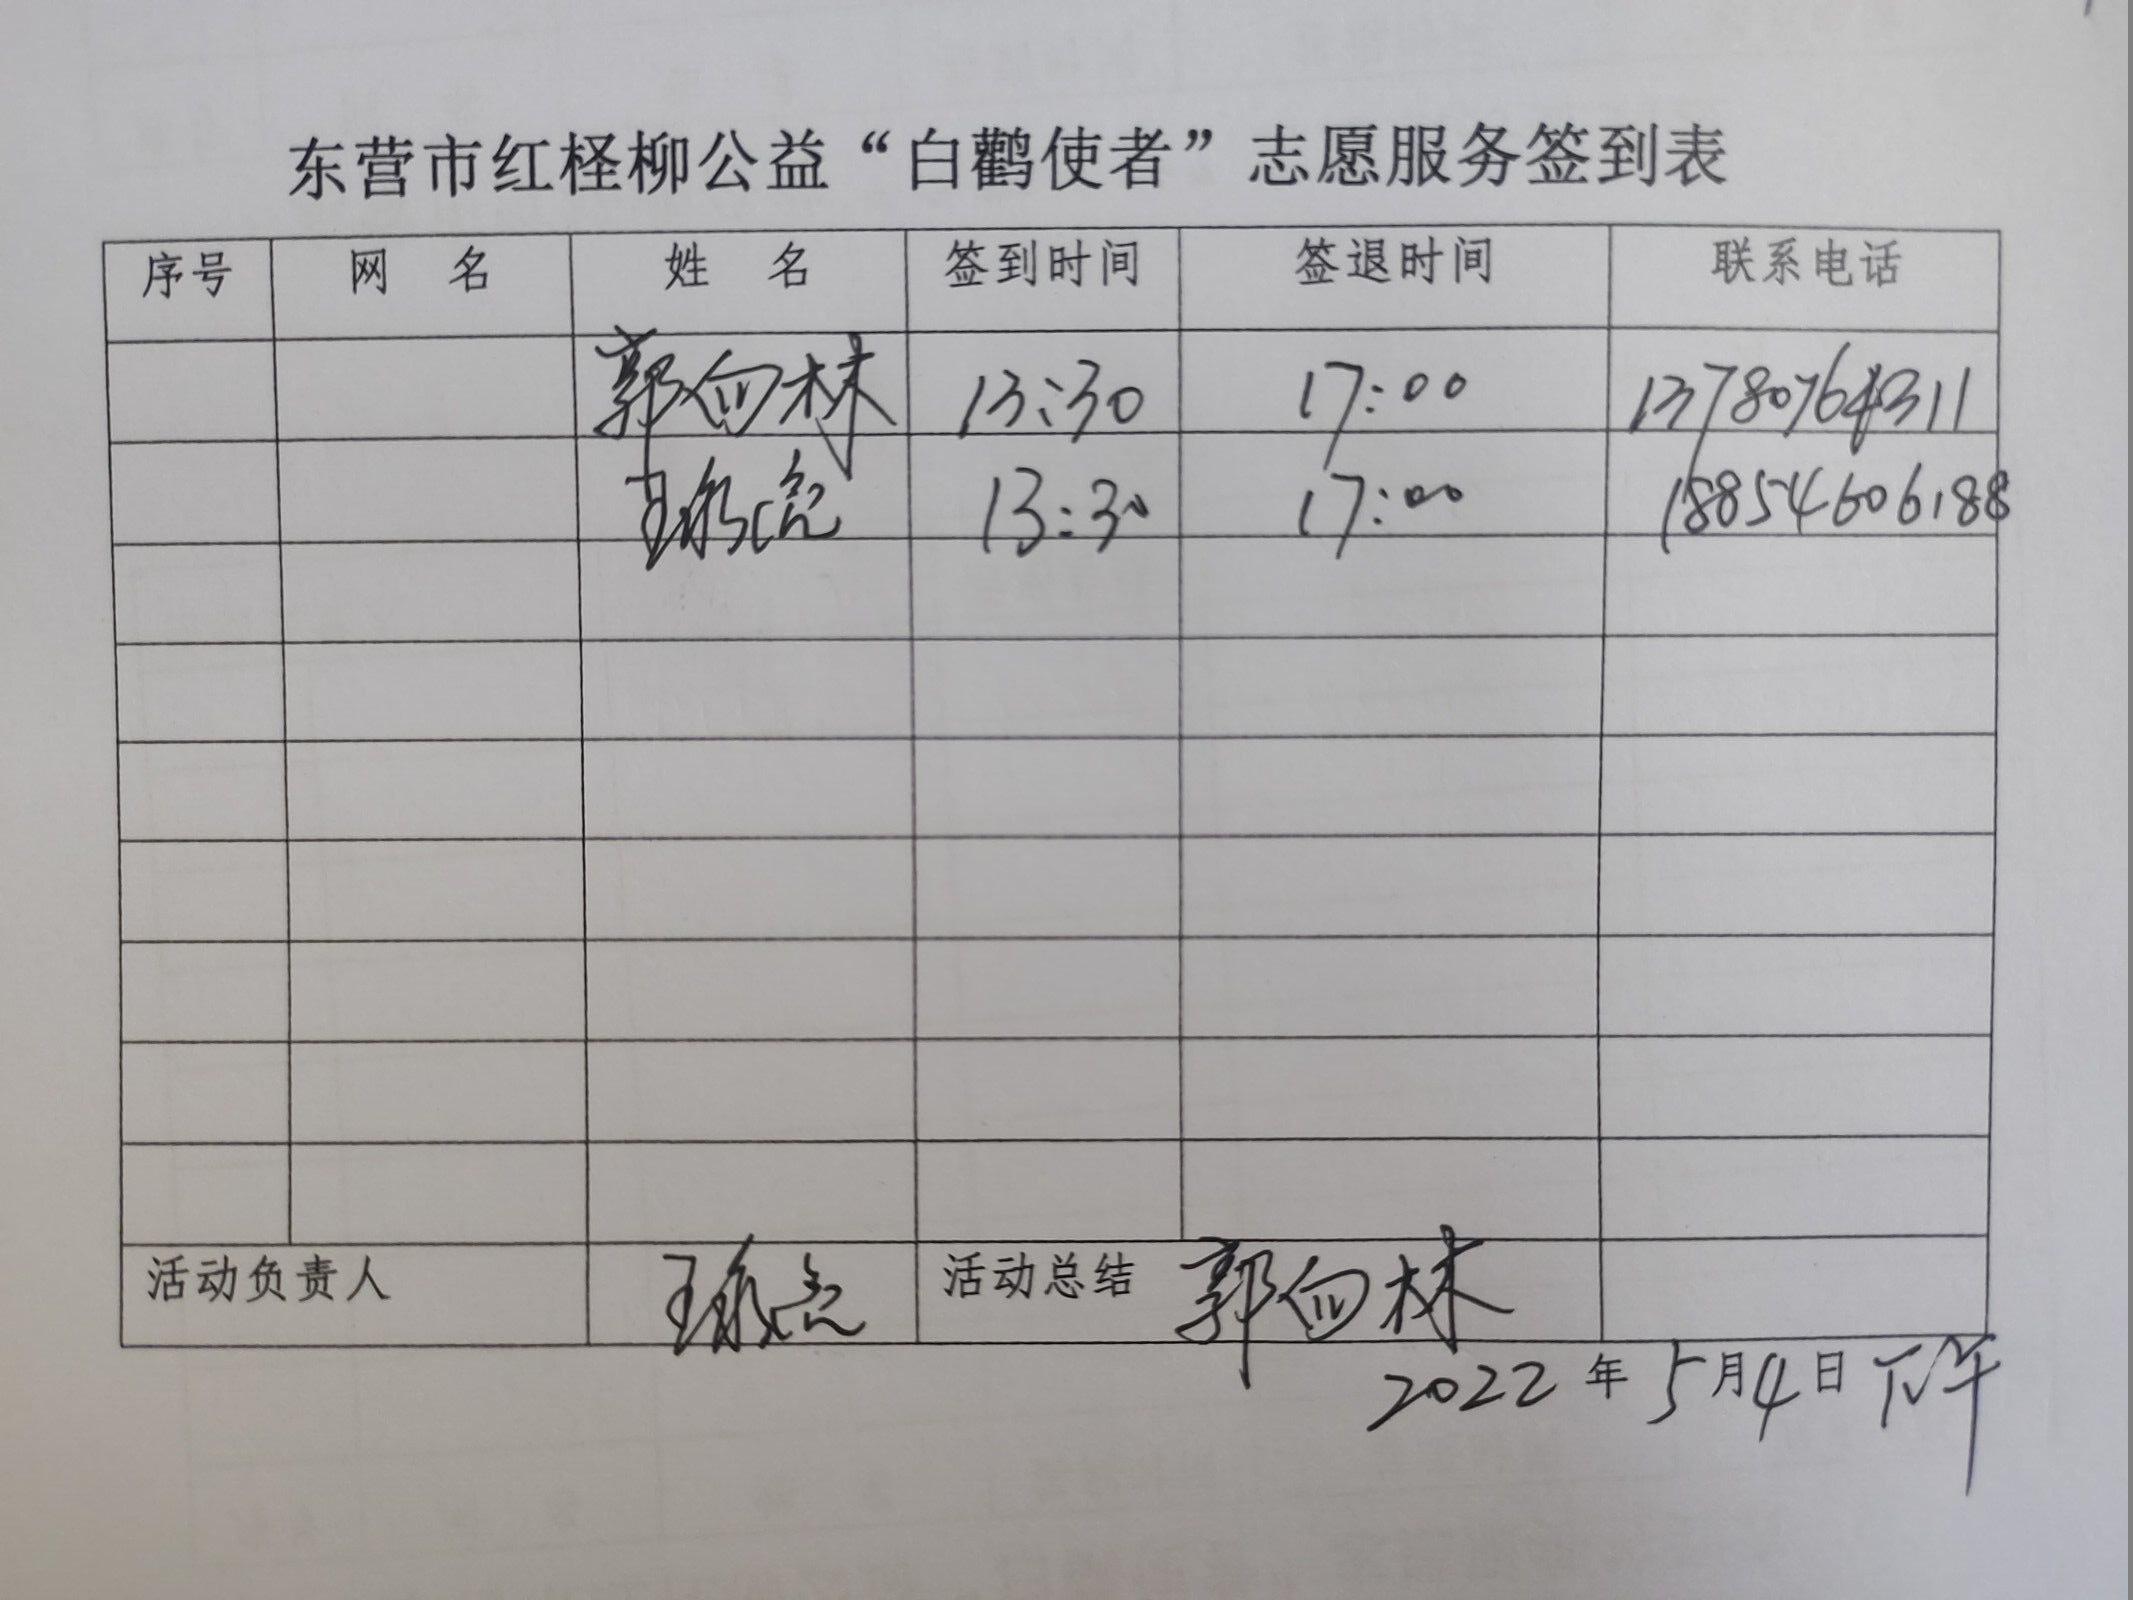 东营市红柽柳公益“白鹳使者”志愿服务签到表
序号 网 名 姓 名 签到时间 签退时间 联系电话
郭向林 13:30 17:00 13780764311
13:30 17:00 18854606188
活动负责人 活动总结 郭向林
2022年5月4日下午